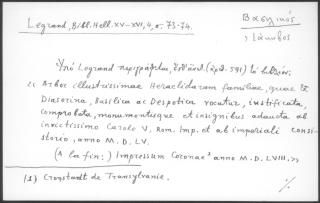 Legrand, Bibl. Hell. XV-XVI, 4, σ. 73-74.
Βασιλικός
Ἰάκωβος
Ὑπὸ Legrand περιγράφεται, (ἀρ. 591) τὸ
« Arbor illustrissimae Heraclidarum familiae, quae &
Diasorina, Basilica ac Despotica vocatur, iustificata,
comprobata, monumentisque et insignibus adaucta ab
invictissimo Carolo V, Rom. Imp. et ab imperiali consi-
storio, anno M. D. LV.
(A la fin:) Impressum Coronae¹ anno M. D. LVIII. »
(1) Cronstadt de Transylvanie.
./.